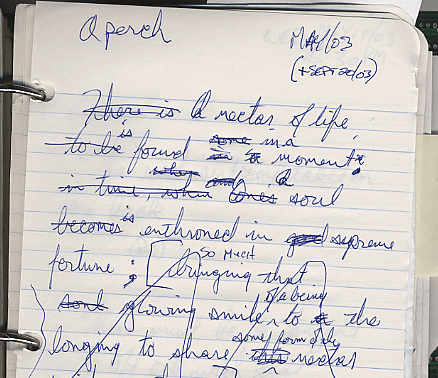 A perch
MAY/03
(+SEPT 20/03)
There is A nectar of life
is
to be found some in a moment.
when and A
in time, when one's soul
becomes is enthroned in good supreme
so much
fortune; [bringing that
of a being
soul glowing smile, to the
some form of
longing to share this nectar